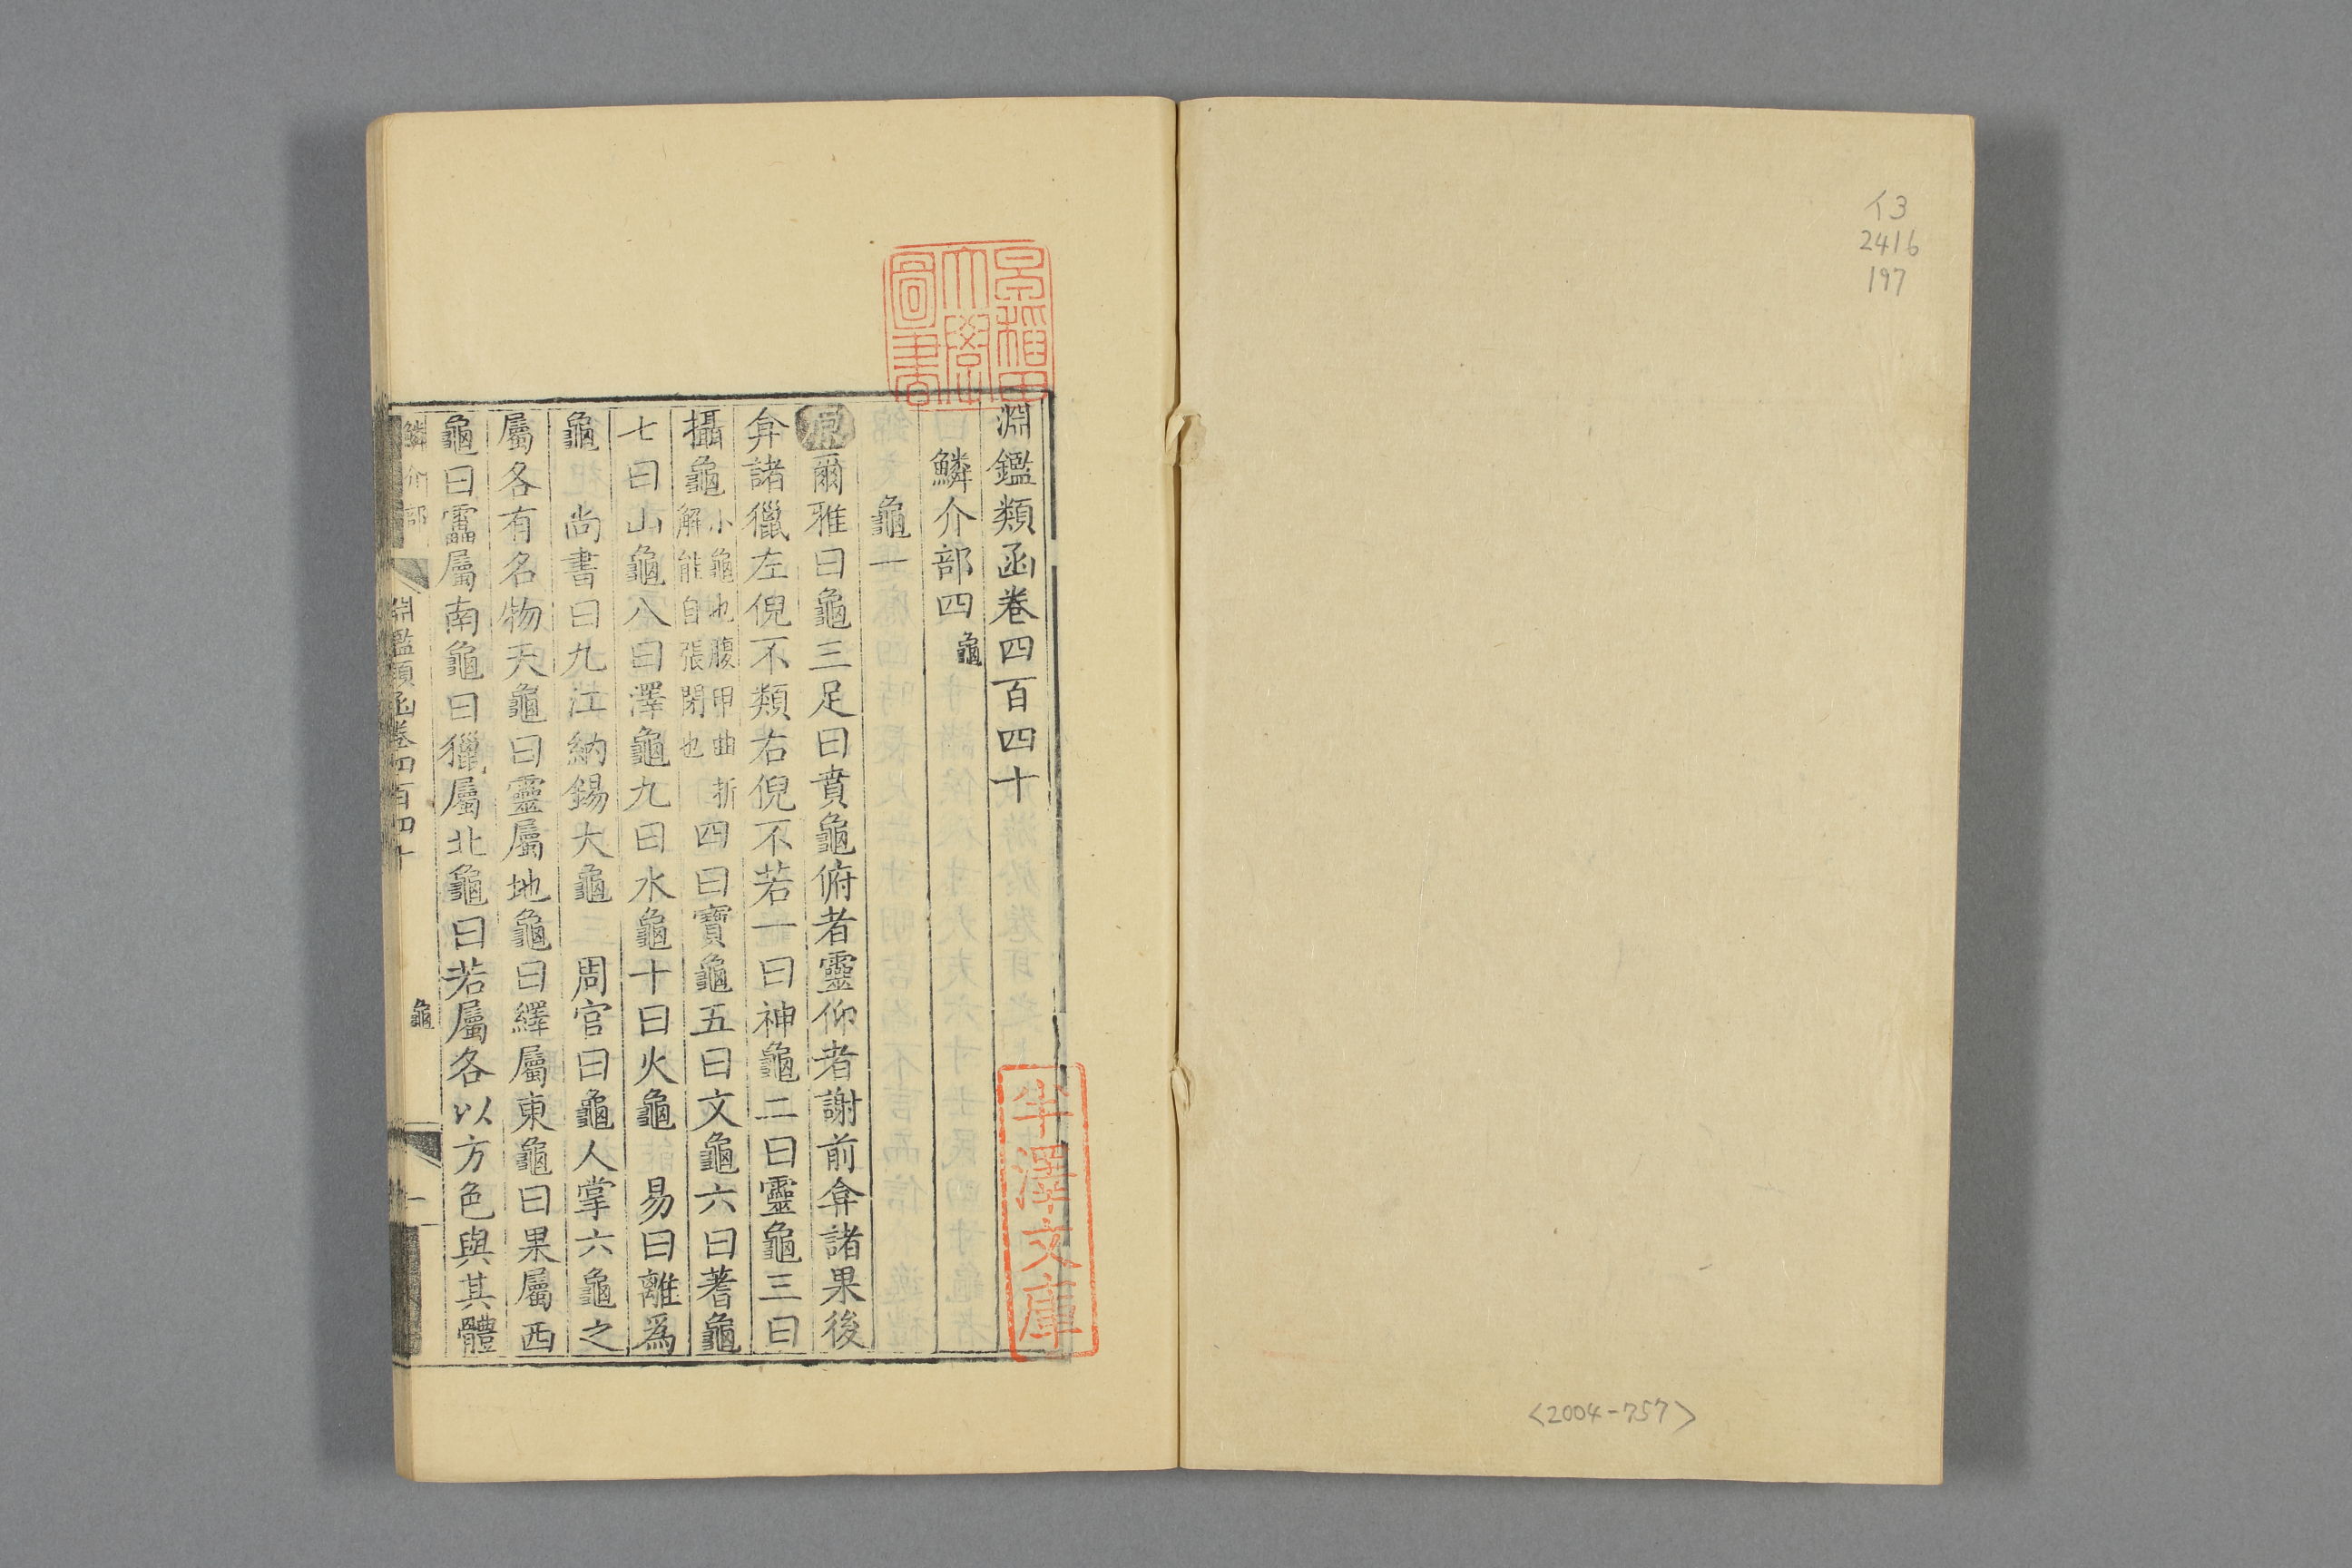 イ3
2416
197
<2004-757>
早稲田
大學
圖書
半澤文庫
淵鑑類函卷四百四十
鱗介部四 龜
龜一
原爾雅曰龜三足曰賁龜俯者靈仰者謝前弇諸果後
弇諸獵左倪不類右倪不若一曰神龜二曰靈龜三曰
攝龜小龜也腹甲曲折解能自張閉也四曰寶龜五曰文龜六曰蓍龜
七曰山龜八曰澤龜九曰水龜十曰火龜 易曰離爲
龜 尚書曰九江納錫大龜 周官曰龜人掌六龜之
屬各有名物天龜曰靈屬地龜曰繹屬東龜曰果屬西
龜曰靁屬南龜曰獵屬北龜曰若屬各以方色與其體
鱗介部 淵鑑類函卷四百四十 龜 一